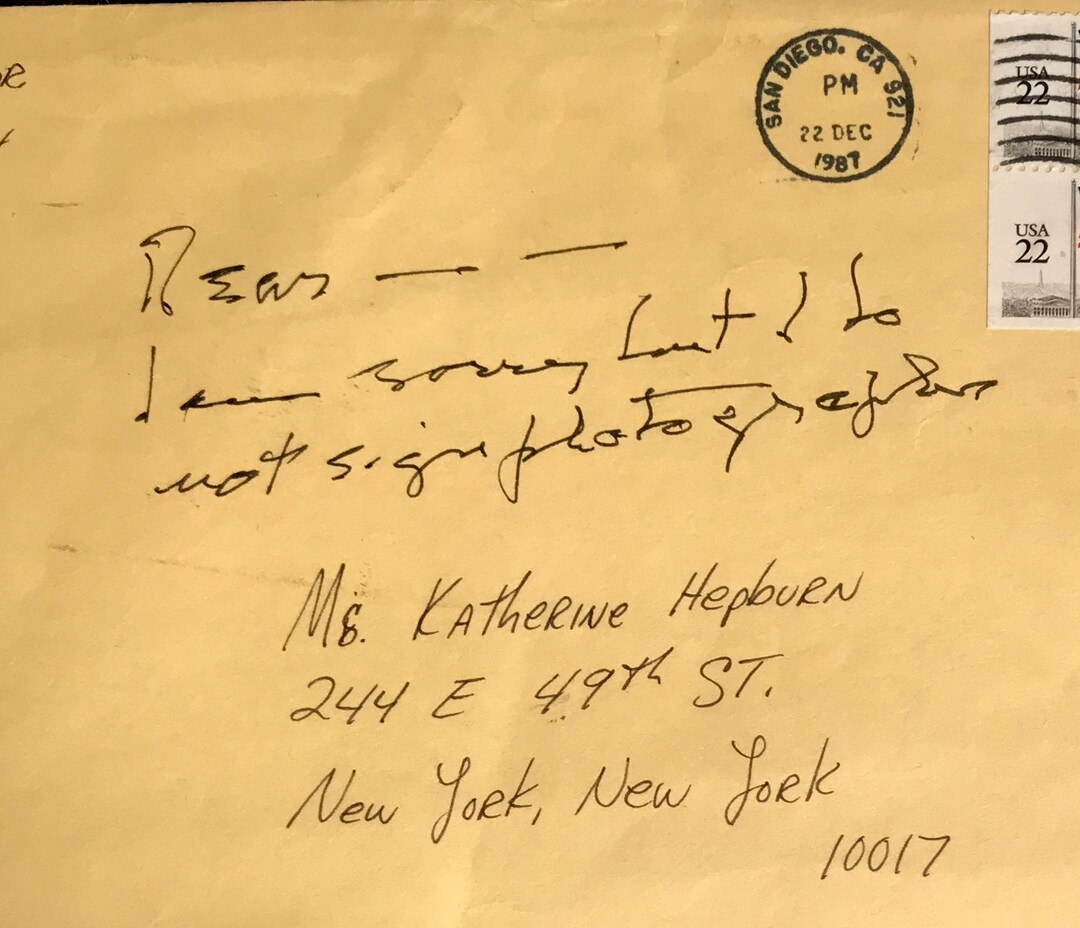 SAN DIEGO. CA 921
PM
22 DEC
1987
USA
22
USA
22
Dear — —
I am sorry but I do
not sign photographs
Ms. Katherine Hepburn
244 E 49th ST.
New York, New York
10017